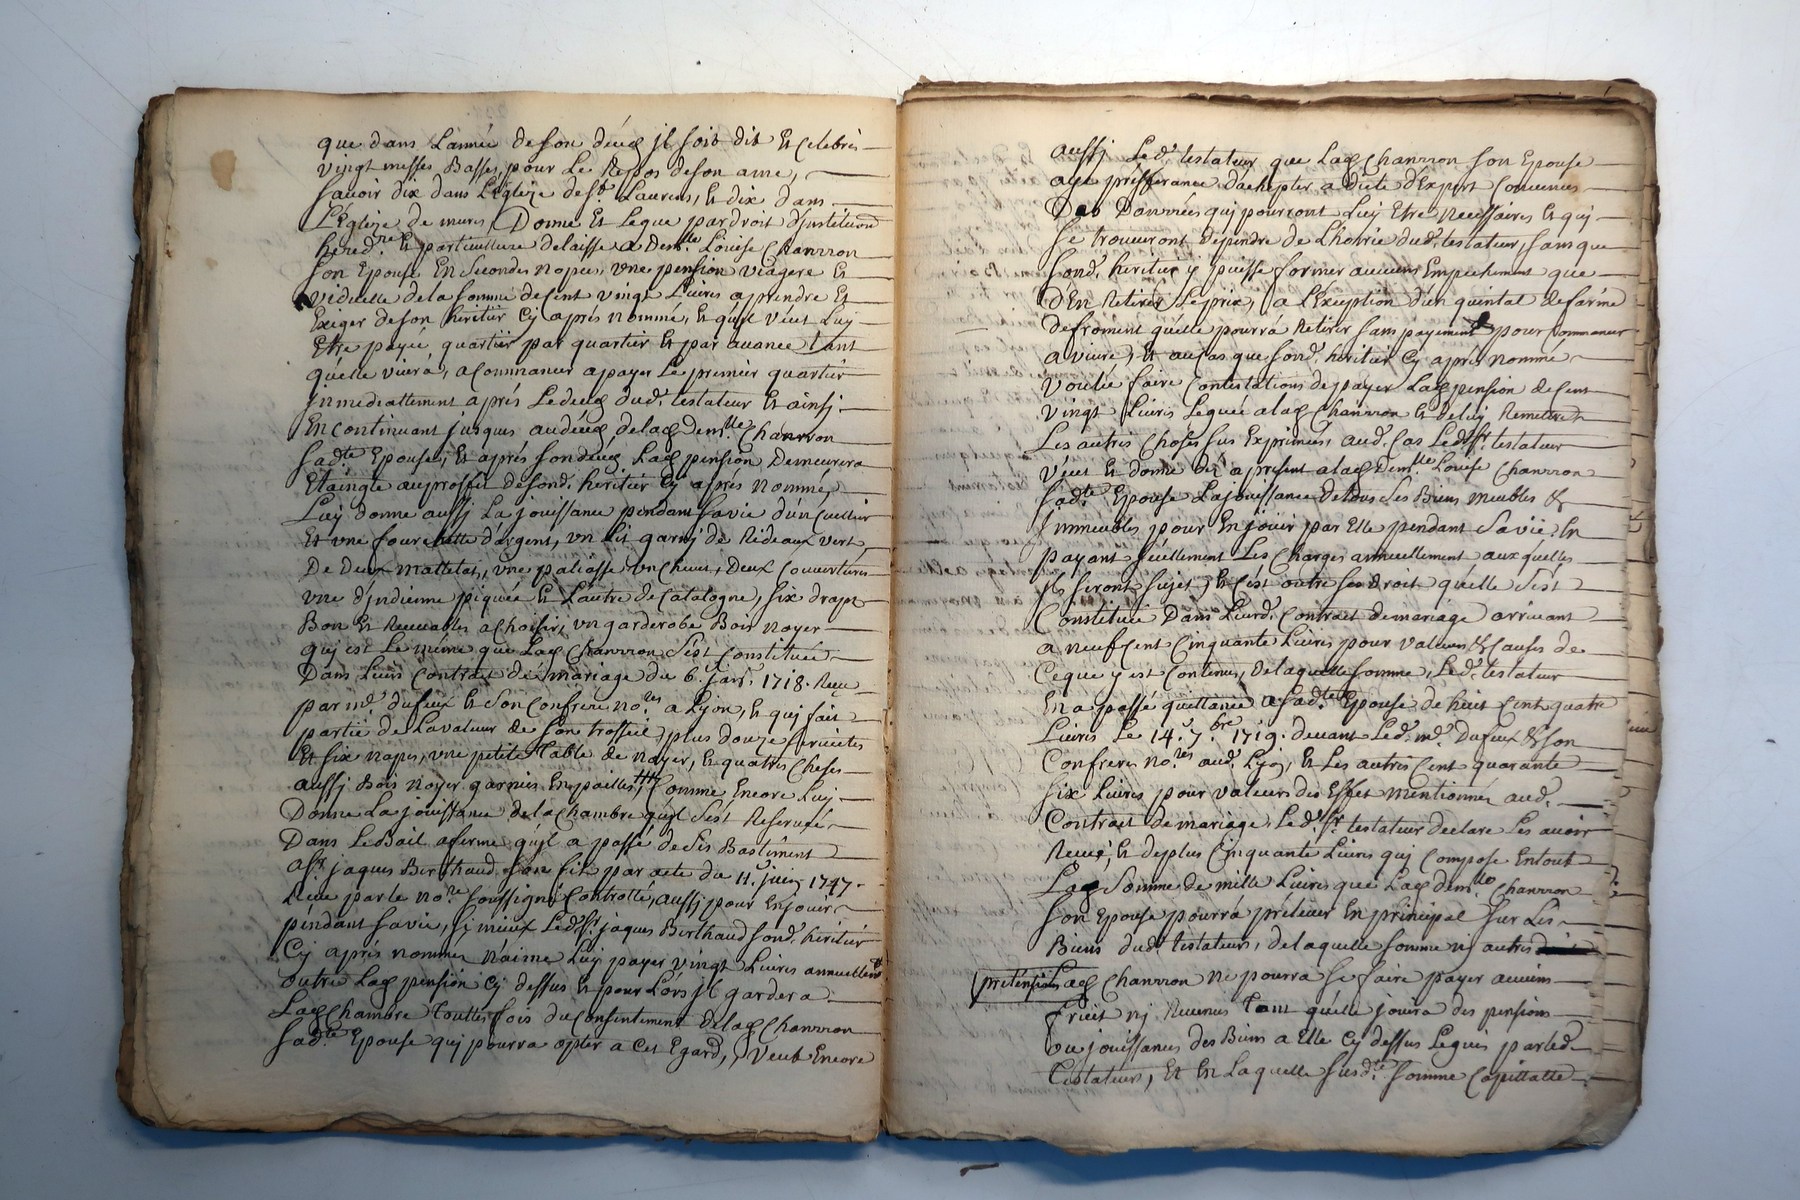 que dans Lannée de son déceds jl soit dit et celebrés
vingt messes Basses, pour Le Repos de son ame,
savoir dix dans L'Eglize de St. Laurens, et dix dans
L'Eglize de mures, Donne et Legue par droit d'jnstitution
hered.re et particulliere delaisse a Dem.lle Louise Chanvron
son Epouse En secondes nopces, une pension viagere et
viduelle de la somme de Cent vingt Livres a prendre et
Exiger de son heritier Cy aprés Nommé, et qu'jl veut Luy
Etre payée, quartier par quartier et par avance tant
quelle vivra, a Commancer a payer Le premier quartier
jmmediattement aprés Le deceds dud. testateur et ainsj
En continuant jusques au déceds de lad Dem.lle Chanvron
sad.te Epouse, et aprés son déceds Lad pension Demeurera
Etaingte au proffit de sond. heritier Cy aprés nommé,
Luy donne aussj La jouissance pendant sa vie d'un Cuellier
et une fourchette d'argent, un Lit garnj de Rideaux vert,
De deux mattelas, une paliasse un Chevet, Deux Couvertures
une d'jndienne piquée et L'autre de Catalogne, six draps
Bon et Recevables a Choisir, un garderobe Bois noyer
quj est Le même que Lad Chanvron s'est Constituée
Dans Leurs Contrat de mariage du 6. janv.r 1718. Receu
par me. dufeux et son Confrere no.res a Lyon, et quj fait
partie de La valeur de son trosseil, plus douze serviettes
et six napes, une petite Table de noyer, et quatres Chesses
aussj Bois noyer garnies En pailles, Comme Encore Luy
Donne La jouissance de la Chambre qu'jl s'est Reservée
Dans Le Bail a ferme qu'jl a passé de ses Bastiment
a sr. jaques Berthaud son fils par acte du 11. juin 1747.
Receu par le no.re soussigné Controllé, aussj pour En jouir
pendant sa vie, sj mieux Led. sr. jaques Berthaud sond. heritier
Cy aprés nommé, n'aime Luy payer vingt Livres annuellem.t
outre Lad pension Cy dessus et pour Lors jl gardera
Lad Chambre Touttes fois du Consentement de lad Chanvron
sad.te Epouse quj pourra opter a Cet Egard, veut Encore
aussj Led. testateur que Lad Chanvron son Epouse
aye prefferance d'achepter a Dicte d'Expert Convenus
Des Danrrées quj pourront Luy Etre necessaires et quj
se trouveront dependre de L'hoirie dud. testateur, sans que
sond. heritier y puisse former aucuns Empechement que
d'En Retirer Le prix, a L'Exception d'un quintal de farine
de froment qu'elle pourra Retirer sans payement pour Commancer
a vivre, et au cas que sond. heritier Cy aprés nommé
voulut faire Contestations de payer Lad pension de Cent
vingt Livres Leguée a lad Chanvron et de luy Remettre
Les autres Choses sus Exprimées, aud. Cas Led. sr. testateur
veut et donne dez a present a lad Dem.lle Louise Chanvron
sad.te Epouse La jouissance de tous ses Biens meubles &
Immeubles pour En joüir par Elle pendant sa vie, En
payant séellement Les Charges annuellement aux quelles
jls seront sujet, et C'est outre ses droit qu'elle s'est
Constitué Dans Leurd. Contract de mariage arrivant
a neuf Cent Cinquante Livres pour valeurs & Causes de
Ce que y est Contenus, De laquelle somme, Led. testateur
En a passé quittance a sad.te Epouse de huit Cent quatre
Livres Le 14. 7.bre 1719. devant Led. me. Dufeux & son
Confreres no.res aud. Lyon, et Les autres Cent quarante
six Livres pour valeurs des Effet mentionnés aud.
Contract de mariage, Led. sr. testateur declare Les avoir
Receu, et de plus Cinquante Livres quj Compose En tout
Lad Somme de mille Livres que Lad dem.lle Chanvron
son Epouse pourra prélever En principal sur Les
Biens dud. testateur, de laquelle somme nj autres
pretensions Lad Chanvron ne pourra se faire payer aucuns
fruit nj Revenus Tant qu'elle jouira des pensions
ou jouissances des Biens a Elle Cy dessus Legués par led.
testateur, et En Laquelle susd.te somme Capittalle